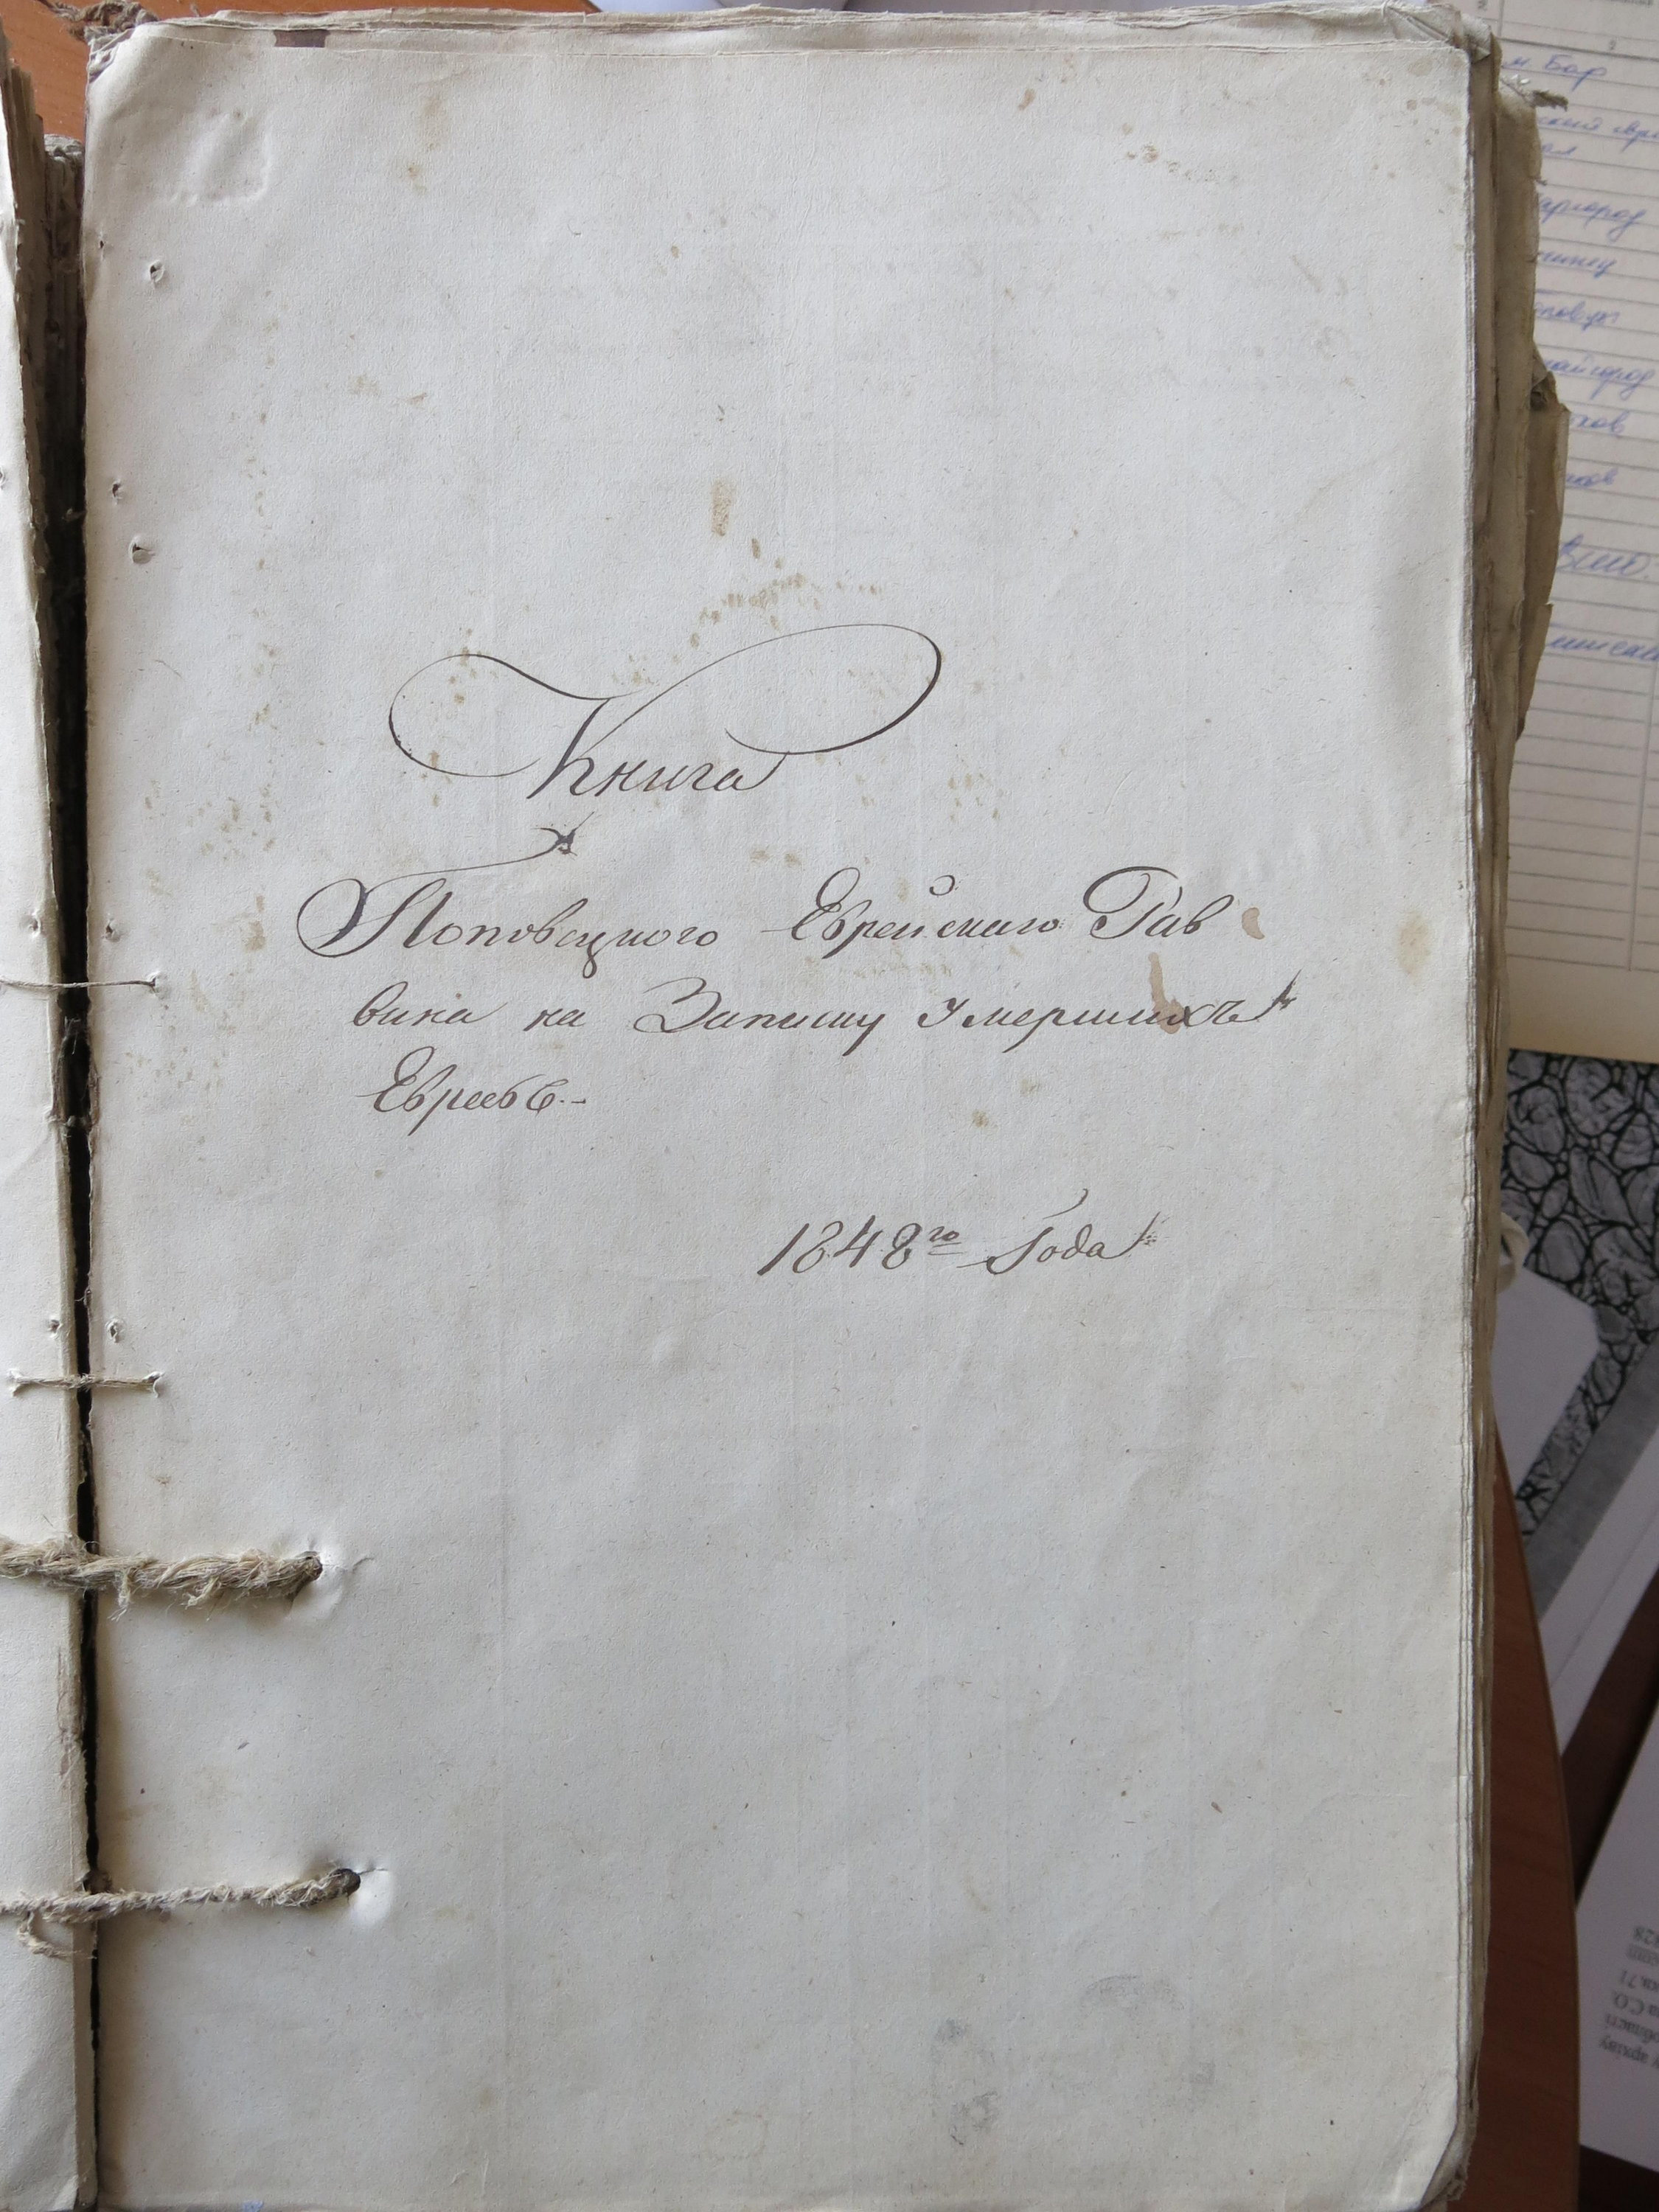 Книга
Поповецкого Еврейскаго Рав
вина на Записку Умершихъ
Евреевъ.-
1848го Года
м. Бар